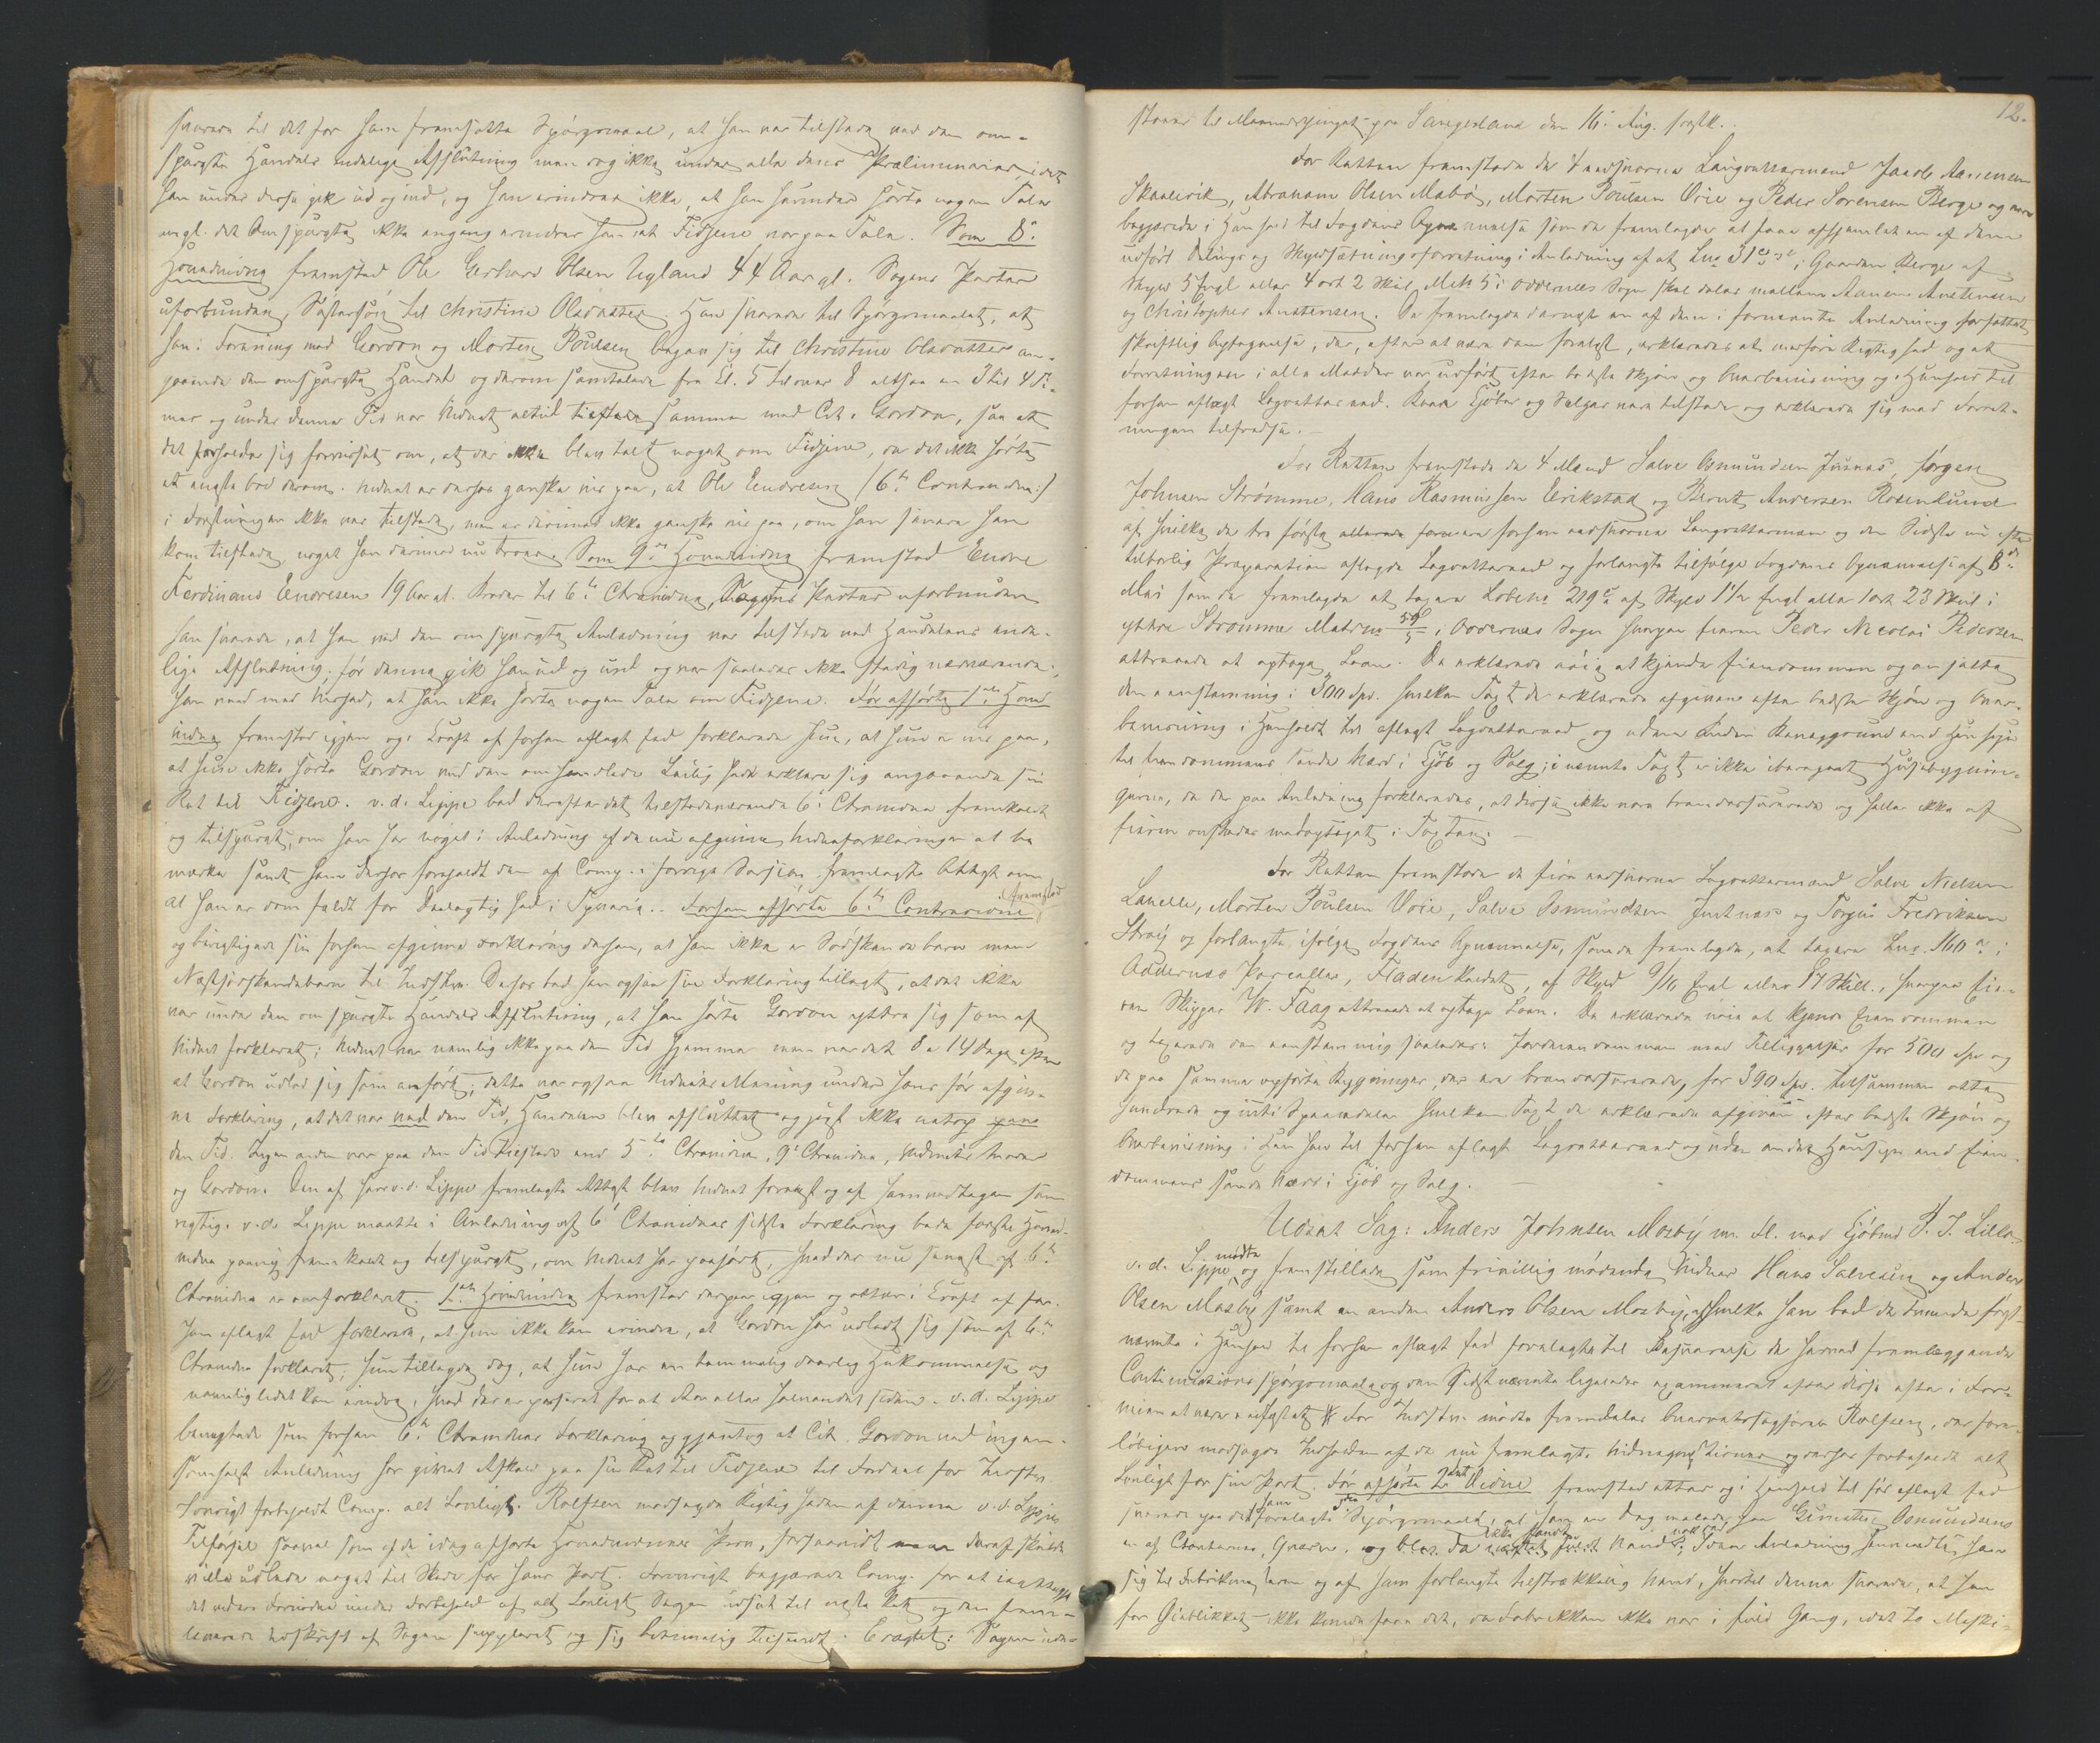 svarede til det for ham fremsatte Spørgsmaal, at han var tilstede ved den om-
spurgte Handels endelige Afslutning men dog ikke under alle dens Præliminarier, idet
han under disse gik ud og ind, og han erindrer ikke, at han herunder hørte nogen Tale
angl. det Omspurgte ikke engang erindrer han at Fidjene var paa Tale. Som 8de
Hovedvidne fremstod Ole Gerhard Olsen Ugland 44 Aar gl. Sagens Parter
uforbunden, Søstersøn til Christine Olsdatter. Han svarede til Spørgsmaalet, at
han i Forening med Gordon og Morten Poulsen begav sig til Christine Olsdatter an-
gaaende den omspurgte Handel og derom samtalede fra Kl. 5 til over 8 altsaa en 3 til 4 Ti-
mer og under denne Tid var Vidnet altid tilstede sammen med Cit. Gordon, saa at
det forholder sig forvisset om, at der ikke blev talt noget om Fidjene, da det ikke hørte
et eneste Ord derom. Vidnet er derfor ganske vis paa, at Ole Endresen /6te Contravidne/
i Førstningen ikke var tilstede, men er derimod ikke ganske vis paa, om han senere hen
kom tilstede, noget han derimod nu troer. Som 9de Hovedvidne fremstod Endre
Ferdinand Endresen 19 Aar gl. Broder til 6te Ctravidne, Sagens Parter uforbunden
han svarede, at han ved den omspurgte Anledning var tilstede ved Handelens ende-
lige Afslutning; før denne gik han ud og ind og var saaledes ikke stadig nærværende;
han veed med Vished, at han ikke hørte nogen Tale om Fidjene. Før afhørte 1ste Hoved
vidne fremstod igjen og i Kraft af forhen aflagt Eed forklarede hun, at hun er vis paa,
at hun ikke hørte Gordon ved den omhandlede Leilighed erklære sig angaaende sin
Ret til Fidjene. v. d. Lippe bad derefter det tilstedeværende 6te Ctravidne fremkaldt
og tilspurgt, om han har noget i Anledning af de nu afgivne Vidneforklaringer at be
mærke samt ham derfor foreholdt den af Comp. i forrige Session fremlagte Attest om
at han er dømt for Deelagtighed i Tyveri. Forhen afhørte 6te Contravidne fremstod
og berigtigede sin forhen afgivne Forklaring derhen, at han ikke er Sødskendebarn men
Næstsødskendebarn til Indstn. Derfor bad han ogsaa sin Forklaring tillagt, at det ikke
var under den omspurgte Handels Afslutning, at han hørte Gordon yttre sig som af
Vidnet forklaret; Vidnet var nemlig ikke paa den Tid hjemme men var det 8 a 14 Dage efter
at Gordon udlod sig som anført; dette var ogsaa Vidnets Mening under hans før afgiv-
ne Forklaring, at det var ved den Tid, Handelen blev afsluttet og just ikke netop paa
den Tid. Ingen anden var paa den Tid tilstede end 5te Ctravidne, 9de Ctravidne, Vidnets Moder
og Gordon. Den af Hr. v. d. Lippe fremlagte Attest blev Vidnet forelæst og af ham vedtagen som
rigtig. v. d. Lippe maatte i Anledning af 6te Ctravidnes sidste Forklaring bede første Hoved-
vidne paany fremkaldt og tilspurgt, om Vidnet har paahørt, hvad der nu senest af 6te
Ctravidne er omforklaret. 1ste Hovedvidne fremstod derpaa igjen og atter i Kraft af for-
hen aflagt Eed forklarede, at hun ikke kan erindre, at Gordon har udladt sig som af 6te
Ctravidne forklaret; hun tillagde dog, at hun har en temmelig daarlig Hukommelse og
vanskeligt kan erindre, hvad der er passeret for et Aar eller halvandet siden. v. d. Lippe
benegtede som forhen 6te Ctravidnes Forklaring og gjentog at Cit. Gordon ved ingen-
somhelst Anledning har givet Afkald paa sin Ret til Fidjene til Fordeel for Indstn.
Forøvrigt forbeholdt Comp. alt Lovligt. Rolfsen modsagde Rigtigheden af denne v. d. Lippes
Tilførsel saavel som af de idag afhørte Hovedvidners Prov, forsaavidt deraf skulde
ville udledes noget til Skade for hans Part. Forøvrigt begjærede Comp. for at iagttage
det videre Fornødne under Forbehold af alt Lovligt Sagen udsat til næste Ret og den frem-
lagte Udskrift af Sagen suppleret og sig betimelig tilsendt. Eragtet: Sagen uds-
12.
staaer til Maanedsthinget paa Sangesland den 16de Aug. førstk.
For Retten fremstode de 4 edsvorne Laugrettesmænd Jacob Aanensen
Skaalevik, Abraham Olsen Mebø, Morten Poulsen Voie og Peder Sørensen Berge og
begjærede i Henhold til Fogdens Opnævnelse som de fremlagde at faae afhjemlet en af dem
udført Delings og Skyldsætningsforretning i Anledning af at Lno 31 i Gaarden Berge af
Skyld 5 Engl eller 4 ort 2 Skil. Mtr. 5 i Oddernes Sogn skal deles mellem Aanen Anstensen
og Christopher Anstensen. De fremlagde derhos en af dem i fornævnte Anledning forfattet
skriftlig Optegnelse, der, efter at være dem forelæst, erklæredes at medføre Rigtighed og at
Forretningen i alle Maader var udført efter bedste Skjøn og Overbeviisning og i Henhold til
forhen aflagt Laugrettesed. Baade Kjøber og Sælger vare tilstede og erklærede sig med Forret-
ningen tilfredse.
For Retten fremstode de 4 Mænd Salve Osmundsen Justnæs, Jørgen
Johnsen Strømme, Hans Rasmussen Eirikstad og Bernt Andersen Rosenlund
af hvilke de tre første forhen edsvorne Laugrettesmænd og den Sidste nu efter
tilbørlig Præparation aflagde Laugrettesed og forlangte tilfølge Fogdens Opnævnelse af 8de
Mai som de fremlagde at taxere Løbeno 219 af Skyld 1 1/2 Engl eller 1 ort 23 Skil. i
ydtre Strømme Matrno 59 i Oddernes Sogn hvorpaa Eieren Peder Nicolai Pedersen
attraaede at optage Laan. De erklærede nøie at kjende Eiendommen og ansatte
den eenstemmig i 300 Spd. hvilken Taxt de erklærede afgiven efter bedste Skjøn og Over-
beviisning i Henhold til aflagt Laugrettesed og uden andet Hensyn
til Eiendommens sande Værd i Kjøb og Salg; i nævnte Taxt er ikke iberegnet Husebygnin-
gerne, da de paa Anledning forklaredes, at disse ikke vare brandassurerede og heller ikke af
Eieren ønskedes medoptaget i Taxten.
For Retten fremstode de fire edsvorne Laugrettesmænd Salve Nielsen
Lauelle, Morten Poulsen Voie, Salve Osmundsen Justnæs og Torjus Fredriksen
Straij og forlangte ifølge Fogdens Opnævnelse, som de fremlagde, at taxere Lno. 160 a i
Oddernes Parceller, Fladen kaldet, af Skyld 9/16 Engl eller 17 Skill., hvorpaa Eie-
ren Skipper W. Faag attraaede at optage Laan. De erklærede nøie at kjende Eiendommen
og taxerede den eenstemmig saaledes: Jordeiendommen med Tilliggelser for 500 Spd og
de paa samme opførte Bygninger, der ere brandassurerede, for 390 Spd. tilsammen otte
hundrede og niti Speciedaler hvilken Taxt de erklærede afgiven efter bedste Skjøn og
Overbeviisning i Henhold til forhen aflagt Laugrettesed og uden andet Hensyn end Eien-
dommens sande Værd i Kjøb og Salg.
Udsat Sag: Anders Johnsen Mosby m. fl. mod Kjøbmd P. J. Lillo.
v. d. Lippe mødte og fremstillede som frivillig mødende Vidner Hans Salvesen og Anders
Olsen Mosby samt en anden Anders Olsen Mosby, hvilke han bad de tvende først-
nævnte i Henhold til forhen aflagt Eed forelagte til Besvarelse de herved fremlæggende
Continuationsspørgsmaale og den sidst nævnte ligeledes examineret efter disse efter i For-
veien at være edfæstet. For Indstn. mødte fremdeles Overretssagfører Rolfsen, der fore-
løbigen modsagde Indholden af de nu fremlagte og derhos forbeholdt alt
Lovligt for sin Part. Før afhørte 2det Vidne fremstod atter og i Henhold til før aflagt Eed
svarede paa det ham forelagte Spørgsmaal, at han en Dag malede hos Gunstein Osmundsen
en af Citanterne, Qværn, og blev da ikke fundet nok Vand; i den Anledning henvendte han
sig til Fabrikmesteren og af ham forlangte tilstrækkelig Vand, hvortil denne svarede, at han
for Øieblikket ikke kunde faae det, da Fabrikken ikke var i fuld Gang, idet to Maski-